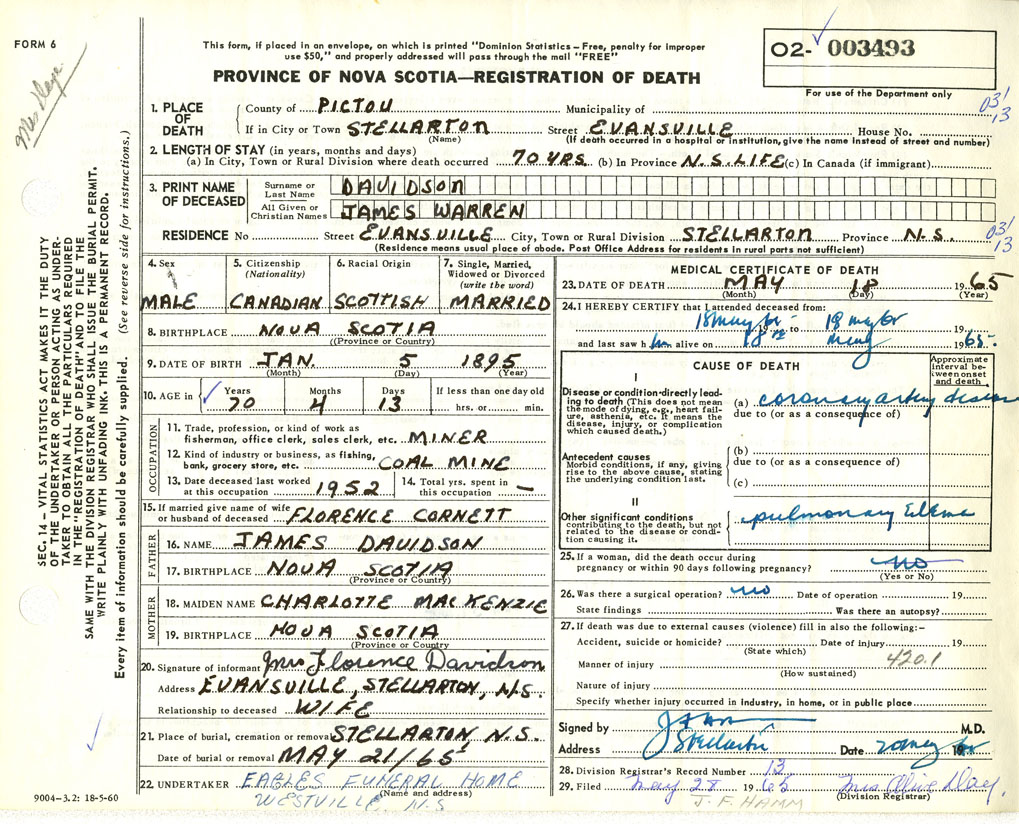 FORM 6
This form, if placed in an envelope, on which is printed "Dominion Statistics – Free, penalty for improper
use $50," and properly addressed will pass through the mail "FREE"
PROVINCE OF NOVA SCOTIA—REGISTRATION OF DEATH
O2- 003493
For use of the Department only
03/
13
Mrs Daye
SEC. 14 – VITAL STATISTICS ACT MAKES IT THE DUTY
OF THE UNDERTAKER OR PERSON ACTING AS UNDER-
TAKER TO OBTAIN ALL THE PARTICULARS REQUIRED
IN THE "REGISTRATION OF DEATH" AND TO FILE THE
SAME WITH THE DIVISION REGISTRAR WHO SHALL ISSUE THE BURIAL PERMIT.
WRITE PLAINLY WITH UNFADING INK. THIS IS A PERMANENT RECORD.
Every item of information should be carefully supplied. (See reverse side for instructions.)
1. PLACE OF DEATH
County of PICTOU Municipality of
If in City or Town STELLARTON Street EVANSVILLE House No.
(Name) (If death occurred in a hospital or institution, give name instead of street and number)
2. LENGTH OF STAY (in years, months and days)
(a) In City, Town or Rural Division where death occurred 70 YRS (b) In Province N.S. LIFE (c) In Canada (if immigrant)
3. PRINT NAME OF DECEASED
Surname or Last Name DAVIDSON
All Given or Christian Names JAMES WARREN
RESIDENCE No Street EVANSVILLE City, Town or Rural Division STELLARTON Province N.S.
03/
13
(Residence means usual place of abode. Post Office Address for residents in rural parts not sufficient)
4. Sex
MALE
5. Citizenship
(Nationality)
CANADIAN
6. Racial Origin
SCOTTISH
7. Single, Married,
Widowed or Divorced
(write the word)
MARRIED
8. BIRTHPLACE NOVA SCOTIA
(Province or Country)
9. DATE OF BIRTH JAN. 5 1895
(Month) (Day) (Year)
10. AGE in
Years Months Days If less than one day old
70 4 13 hrs. or min.
OCCUPATION
11. Trade, profession, or kind of work as
fisherman, office clerk, sales clerk, etc. MINER
12. Kind of industry or business, as fishing,
bank, grocery store, etc. COAL MINE
13. Date deceased last worked
at this occupation 1952
14. Total yrs. spent in
this occupation —
15. If married give name of wife
or husband of deceased FLORENCE CORNETT
FATHER
16. NAME JAMES DAVIDSON
17. BIRTHPLACE NOVA SCOTIA
(Province or Country)
MOTHER
18. MAIDEN NAME CHARLOTTE MACKENZIE
19. BIRTHPLACE NOVA SCOTIA
(Province or Country)
20. Signature of informant Mrs Florence Davidson
Address EVANSVILLE, STELLARTON, N.S.
Relationship to deceased WIFE
21. Place of burial, cremation or removal STELLARTON, N.S.
Date of burial or removal MAY 21/65
22. UNDERTAKER EAGLES FUNERAL HOME
(Name and address)
WESTVILLE, N.S
9004-3.2: 18-5-60
MEDICAL CERTIFICATE OF DEATH
23. DATE OF DEATH MAY 18 1965
(Month) (Day) (Year)
24. I HEREBY CERTIFY that I attended deceased from:
18 May 65 19 to 18 may 65 19
and last saw him alive on 18th May 1965
CAUSE OF DEATH
Approximate
interval be-
tween onset
and death
I
Disease or condition directly lead-
ing to death (This does not mean
the mode of dying, e.g., heart fail-
ure, asthenia, etc. It means the
disease, injury, or complication
which caused death.)
(a) coronary artery disease
due to (or as a consequence of)
Antecedent causes
Morbid conditions, if any, giving
rise to the above cause, stating
the underlying condition last.
(b)
due to (or as a consequence of)
(c)
II
Other significant conditions
contributing to the death, but not
related to the disease or condi-
tion causing it.
pulmonary Edema
25. If a woman, did the death occur during
pregnancy or within 90 days following pregnancy? no
(Yes or No)
26. Was there a surgical operation? no Date of operation 19
State findings Was there an autopsy?
27. If death was due to external causes (violence) fill in also the following:–
Accident, suicide or homicide? Date of injury 19
(State which)
420.1
Manner of injury
(How sustained)
Nature of injury
Specify whether injury occurred in industry, in home, or in public place
Signed by M.D.
Address Stellarton Date 20 may 65 19
28. Division Registrar's Record Number 13
29. Filed May 28 1965 Mrs Olive Day.
J. F. HAMM
(Division Registrar)